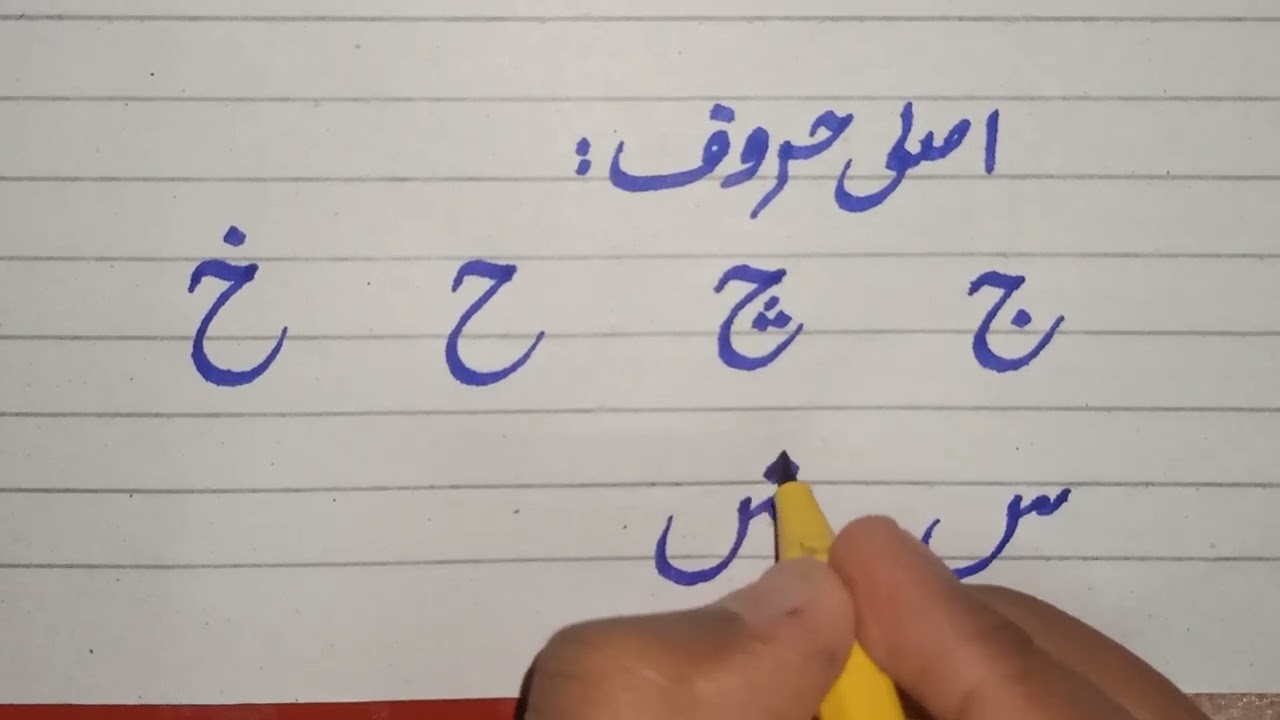 اصلی حروف:
ج چ ح خ
س